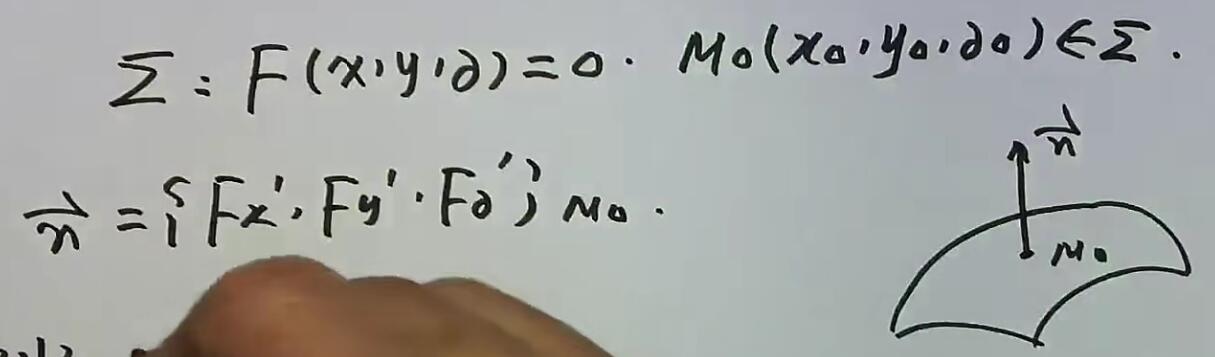 Σ: F(x,y,z)=0. M₀(x₀,y₀,z₀)∈Σ.
n⃗ ={Fx',Fy',Fz'}M₀.
n⃗
M₀